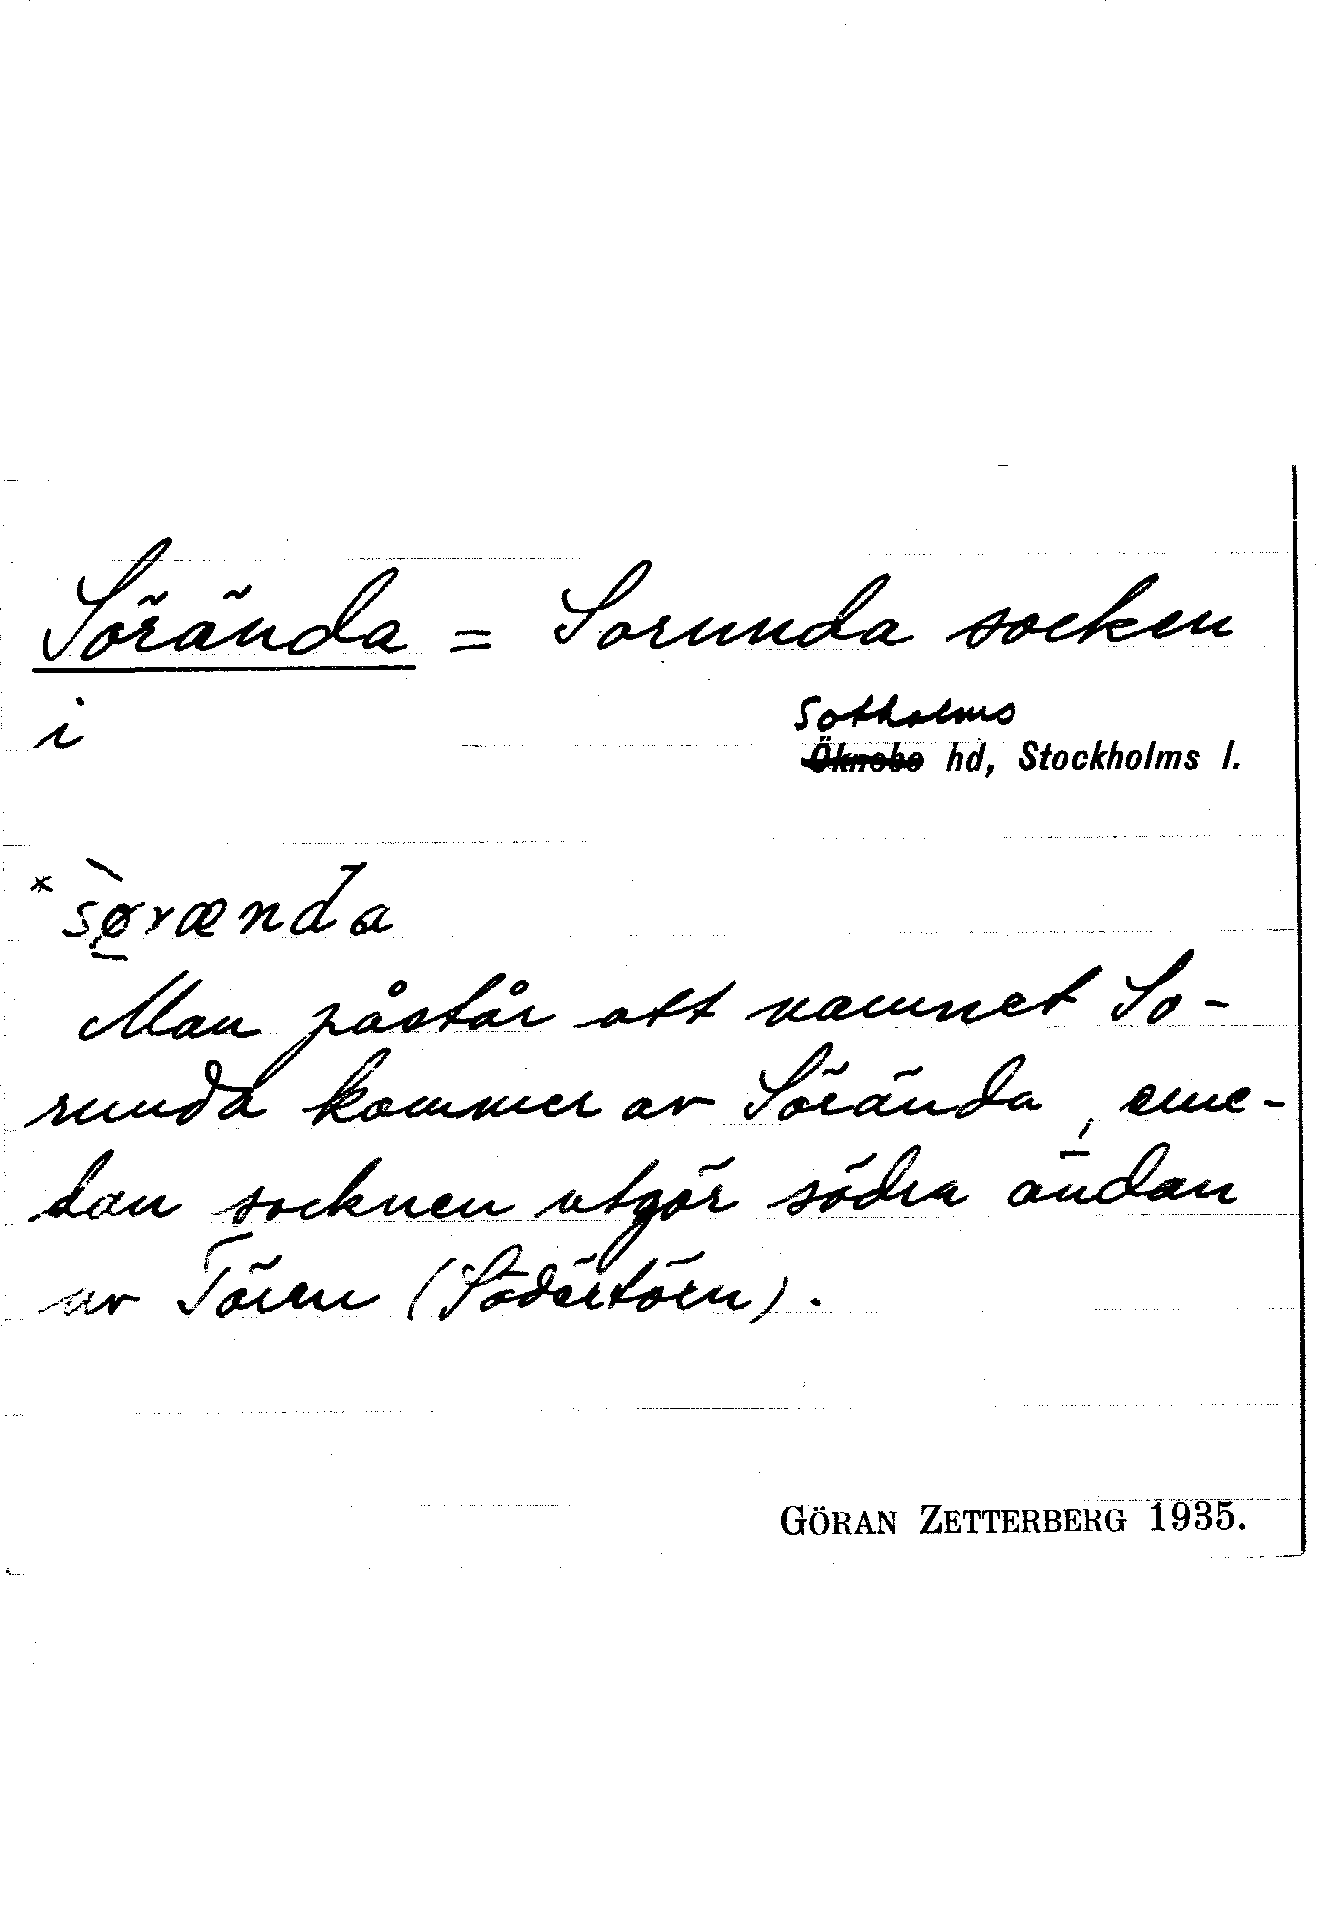 Sörända = Sorunda socken
i
Sotholms
Öknebo hd, Stockholms l.
* sørænda
Man påstår att namnet So-
runda kommer av Sörända, eme-
dan socknen utgör södra ändan
av Tören (Södertörn).
GÖRAN ZETTERBERG 1935.